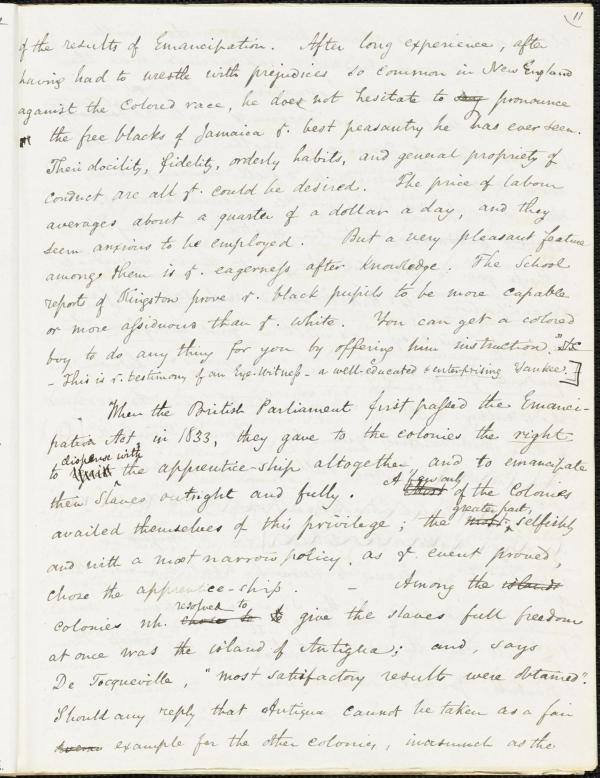 11
of the results of Emancipation. After long experience, after
having had to wrestle with prejudices so common in New England
against the Colored race, he does not hesitate to say pronounce
the free blacks of Jamaica ye. best peasantry he has ever seen.
Their docility, fidelity, orderly habits, and general propriety of
conduct are all yt. could be desired. The price of labour
averages about a quarter of a dollar a day, and they
seem anxious to be employed. But a very pleasant feature
among them is ye. eagerness after Knowledge. The School
reports of Kingston prove ye. black pupils to be more capable
or more assiduous than ye. white. You can get a colored
boy to do any thing for you by offering him instruction."
- This is ye. testimony of an Eye-Witness - a well-educated & enterprising Yankee.]
When the British Parliament first passed the Emanci-
pation Act, in 1833, they gave to the colonies the right
dispense with
to the apprentice-ship altogether, and to emancipate
their Slaves outright and fully. A few only of the Colonies
availed themselves of this privilege; the most greater part, selfishly
and with a most narrow policy, as ye event proved,
chose the apprentice-ship. - Among the islands
resolved to
colonies wh. chose to give the slaves full freedom
at once was the island of Antigua; and, says
De Tocqueville, "most satisfactory results were obtained".
Should any reply that Antigua cannot be taken as a fair
example for the other colonies, inasmuch as the